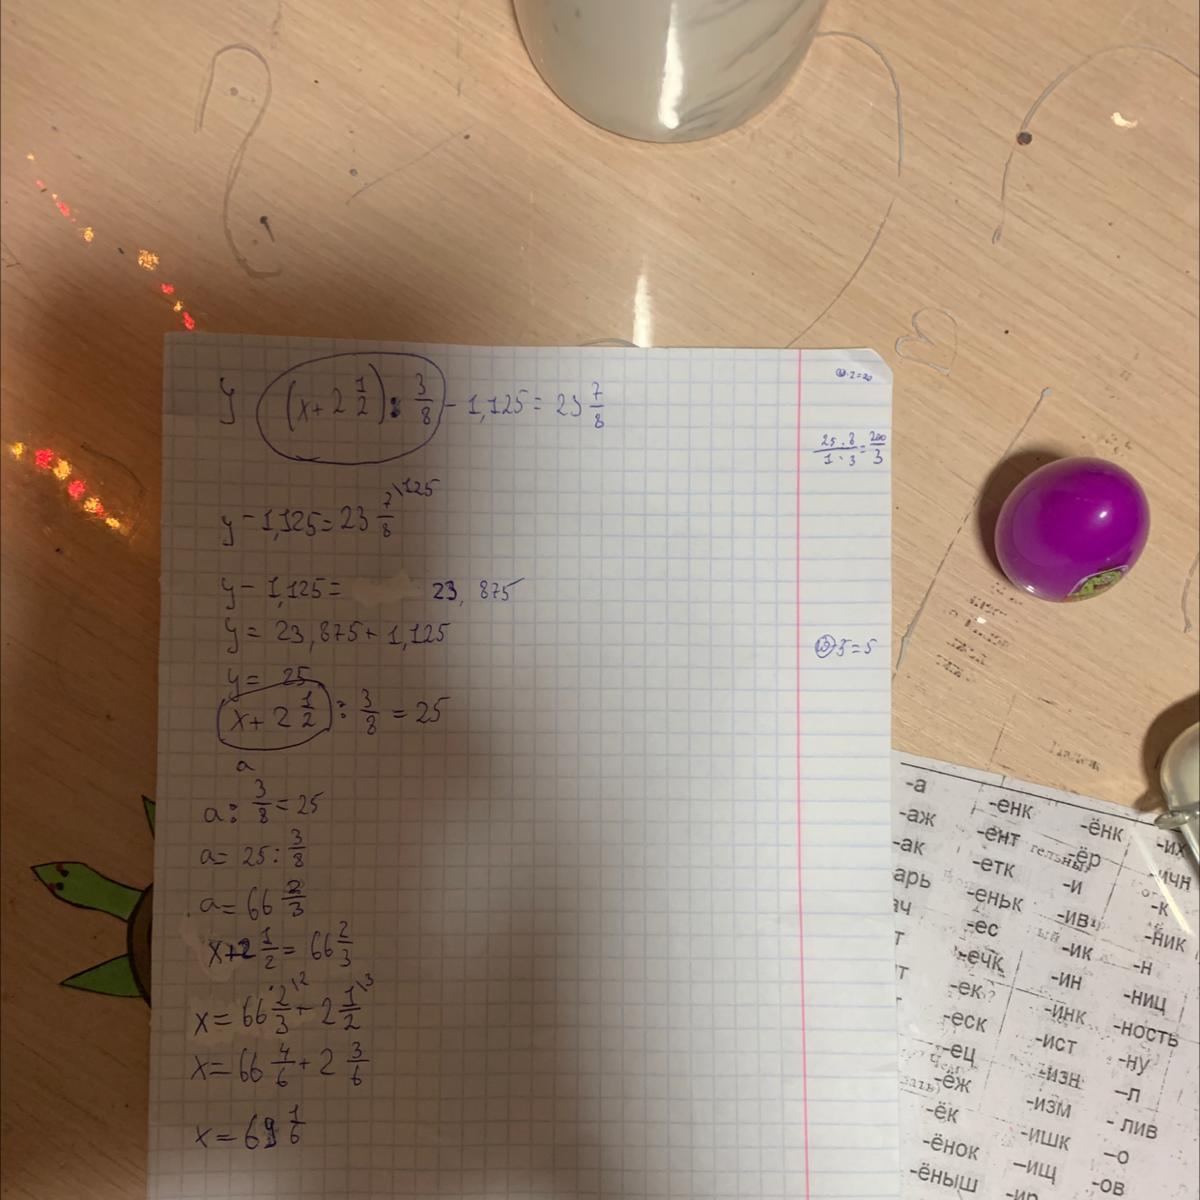 y (x+2 1/2) : 3/8 - 1,125 = 23 7/8
10·2=20
25·8/1·3=200/3
y - 1,125 = 23 7/8 \125
y - 1,125 = 23,875
y = 23,875 + 1,125
10-5=5
y = 25
x + 2 1/2 : 3/8 = 25
a
a : 3/8 = 25
a = 25 : 3/8
a = 66 2/3
x+2 1/2 = 66 2/3
x = 66 2/3 \2 - 2 1/2 \3
x = 66 4/6 + 2 3/6
x = 69 1/6
-а -енк -ёнк -их
-аж -ент -ёр -ичн
-ак -етк -и -к
-еньк -ив -ник
-ес -ик -н
-ечк -ин -ниц
-ек -инк -ность
-еск -ист -ну
-ец -изн -л
-ёж -изм -лив
-ёк -ишк -о
-ёнок -ищ -ов
-ёныш